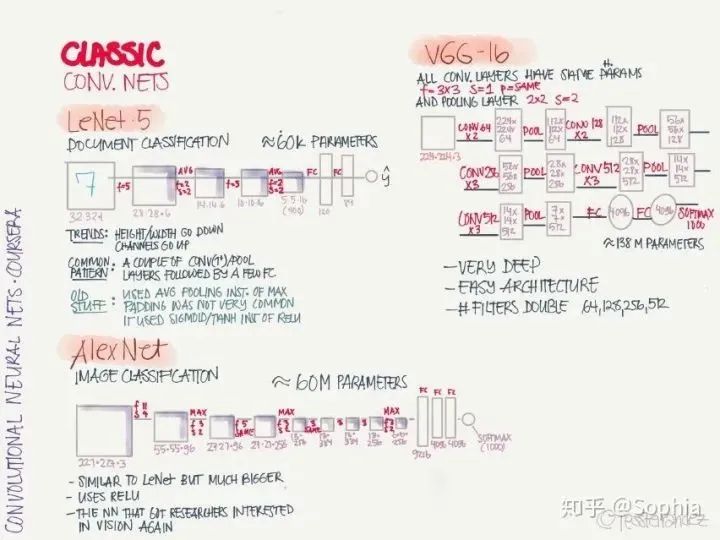 CLASSIC
CONV. NETS
LeNet-5
DOCUMENT CLASSIFICATION
≈60K PARAMETERS
7
f=5
AVG
f=2
S=2
f=5
AVG
f=2
S=2
FC
FC
ŷ
32·32·1
28·28·6
14·14·6
10·10·16
5·5·16
(400)
120
84
TRENDS: HEIGHT/WIDTH GO DOWN
CHANNELS GO UP
COMMON PATTERN: A COUPLE OF CONV(1+)/POOL
LAYERS FOLLOWED BY A FEW FC
OLD STUFF: USED AVG POOLING INST. OF MAX
PADDING WAS NOT VERY COMMON
IT USED SIGMOID/TANH INST OF RELU
AlexNet
IMAGE CLASSIFICATION
≈ 60M PARAMETERS
f 11
S 4
MAX
f 3
S 2
f 5
SAME
MAX
f 3
S 2
3
SAME
3
3
MAX
FC
FC
227·227·3
55·55·96
27·27·96
27·27·256
9216
4096
4096
SOFTMAX
(1000)
- SIMILAR TO LeNet BUT MUCH BIGGER
- USES RELU
- THE NN THAT GOT RESEARCHERS INTERESTED
IN VISION AGAIN
VGG-16
ALL CONV. LAYERS HAVE SAME PARAMS
f=3X3 S=1 P=SAME
AND POOLING LAYER 2X2 S=2
224·224·3
CONV 64
X2
224×
224×
64
POOL
112×
112×
64
CONV 128
X2
112×
112×
128
POOL
56×
56×
128
CONV 256
X3
56×
56×
256
POOL
28×
28×
256
CONV 512
X3
28×
28×
512
POOL
14×
14×
512
CONV 512
X3
14×
14×
512
POOL
7×
7×
512
FC
4096
FC
4096
SOFTMAX
1000
≈138 M PARAMETERS
- VERY DEEP
- EASY ARCHITECTURE
- # FILTERS DOUBLE 64,128,256,512
CONVOLUTIONAL NEURAL NETS · COURSERA
知乎 @Sophia